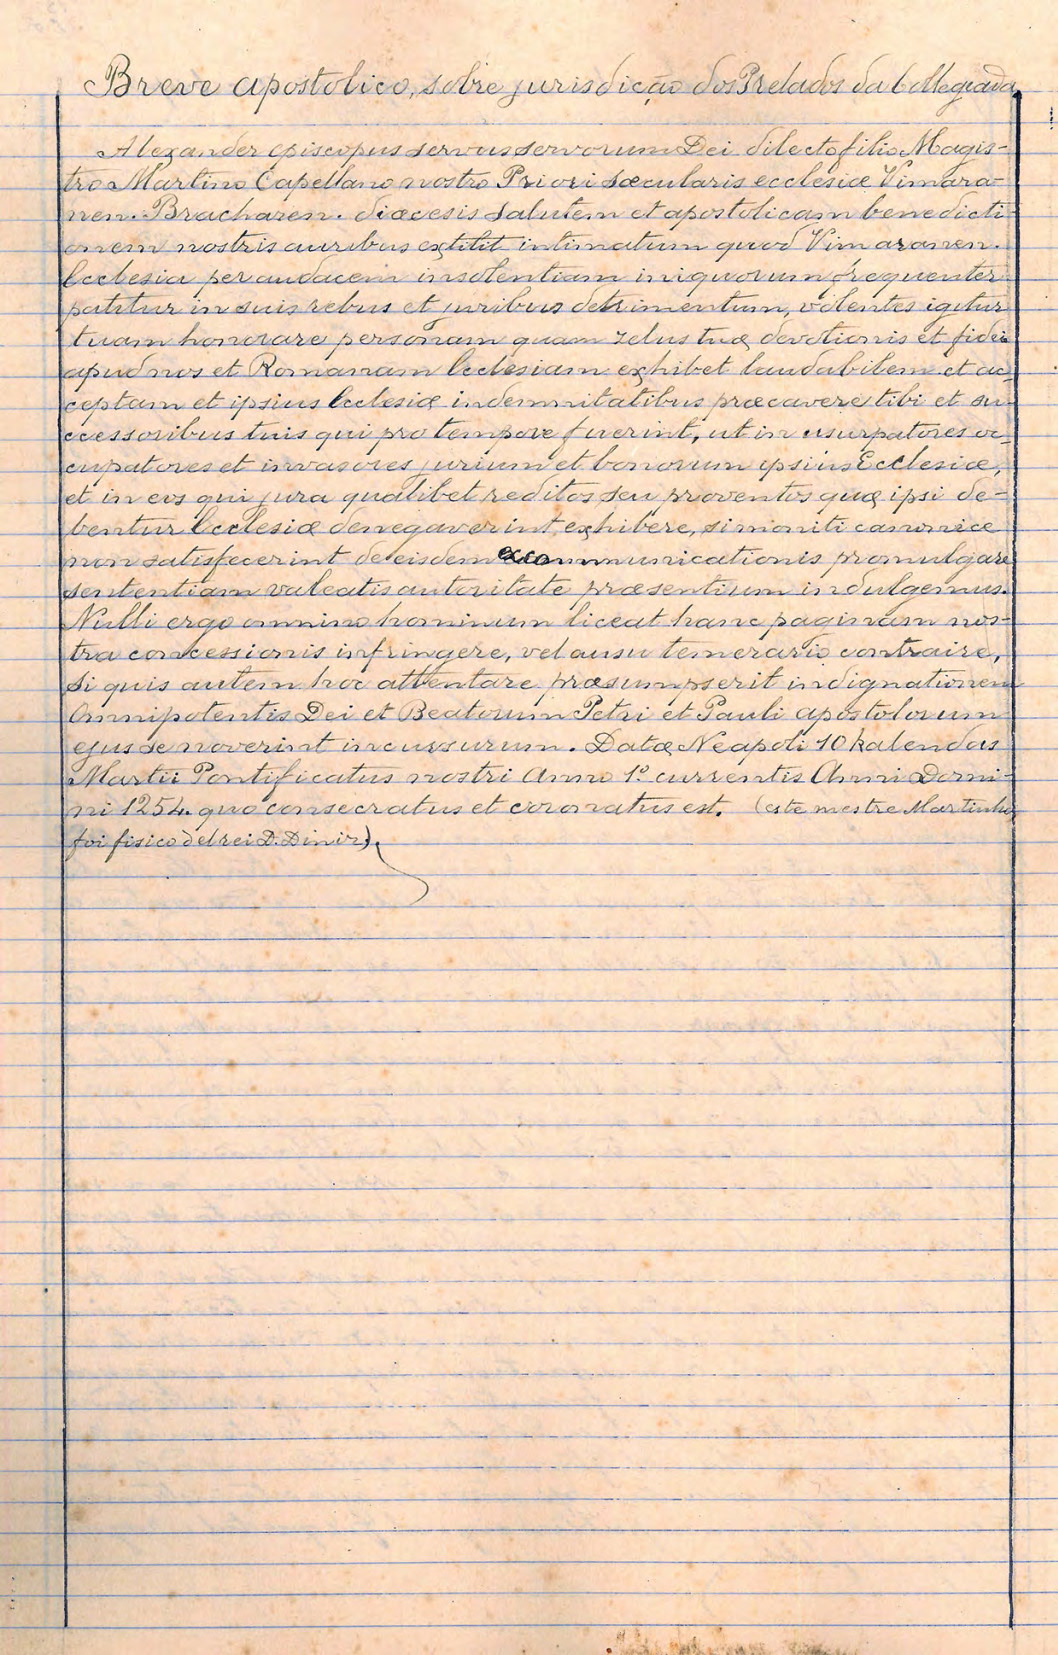 Breve apostolico, sobre jurisdição dos Prelados da Collegiada
Alexander episcopus servus servorum Dei dilecto filio Magis-
tro Martino Capellano nostro Priori sæcularis ecclesiæ Vimara-
nen. Bracharen. diæcesis salutem et apostolicam benedicti-
onem nostris auribus extitit intimatum quod Vimaranen.
Ecclesia per audacem insolentiam iniquorum frequenter
patitur in suis rebus et juribus detrimentum, volentes igitur
tuam honorare personam quam zelus tuæ devotionis et fidei
apud nos et Romanam Ecclesiam exhibet laudabilem et ac-
ceptam et ipsius Ecclesiæ indemnitatibus præcavere tibi et su-
ccessoribus tuis qui pro tempore fuerint, ut in usurpatores oc-
cupatores et invasores jurium et bonorum ipsius Ecclesiæ,
et in eos qui jura qualibet reditos seu proventos quæ ipsi de-
bentur Ecclesiæ denegaverint exhibere, si moniti canonice
non satisfecerint de eisdem excommunicationis promulgare
sententiam valeatis autoritate præsentium indulgemus.
Nulli ergo omnino hominum liceat hanc paginam nos-
tra concessionis infringere, vel ausu temerario contraire,
si quis autem hoc attentare præsumpserit indignationem
Omnipotentis Dei et Beatorum Petri et Pauli apostolorum
ejus se noverint incursurum. Datæ Neapoli 10 kalendas
Martii Pontificatus nostri Anno 1º currentis Anni Domi-
ni 1254. quo consecratus et coronatus est. (este mestre Martinho
foi fisico del rei D. Diniz).